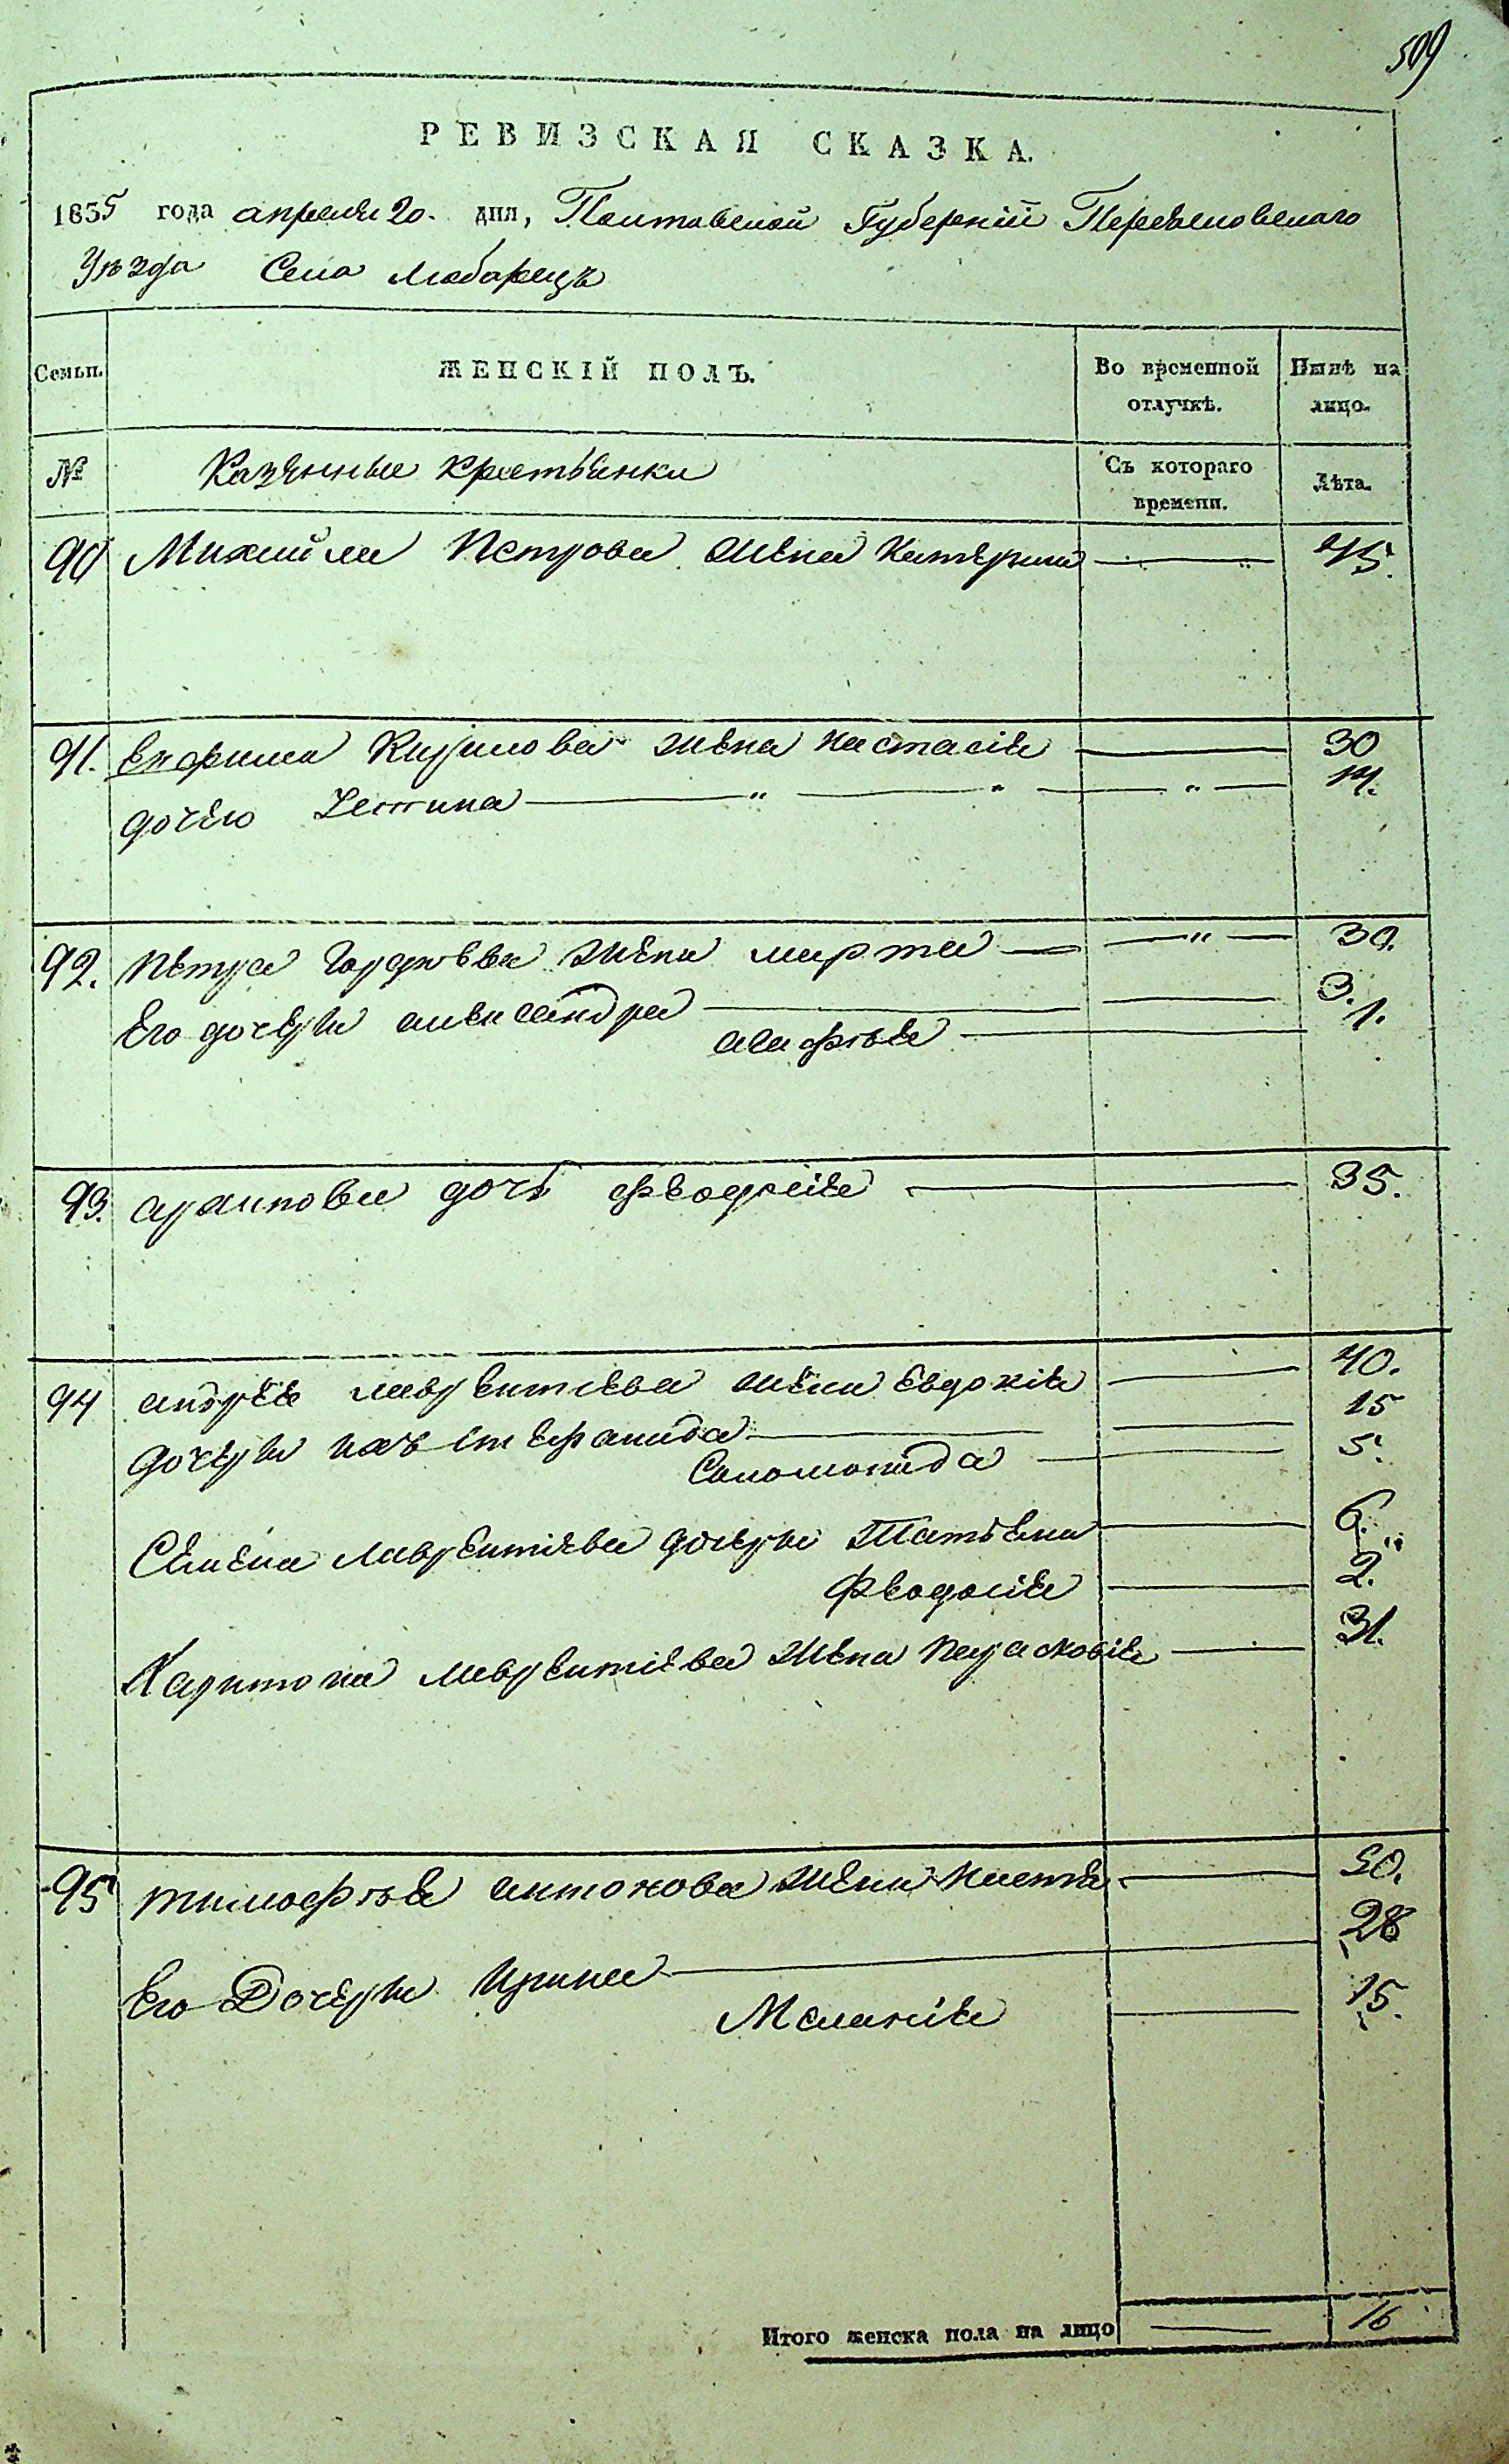 509
РЕВИЗСКАЯ СКАЗКА.
1835 года апреля 20. дня, Полтавской Губернїи Переяславскаго
Уѣзда Села Любарецъ
Семьи. ЖЕНСКІЙ ПОЛЪ. Во временной отлучкѣ. Нынѣ на лицо.
№ Казенные крестьянки Съ котораго времени. Лѣта.
90 Михайла Петрова жена Катерина 45.
91. Ефима Кирилова жена Настасія 30
дочь его 14.
92. Петра Гордѣева жена марта " 30.
Его дочери александра 3.
агафѣя 1.
93. архипова дочь феодосія 35.
94 андрея лаврентіева жена Евдокія 40.
дочери ихъ степанида 15
Соломонида 5.
Семена лаврентіева дочери Татьяна 6.
Феодосія 2.
Харитона лаврентіева жена Парасковія 31.
95 тимофѣя антонова жена Настя 50.
Его Дочери Ирина 28
Меланія 15.
Итого женска пола на лицо 16